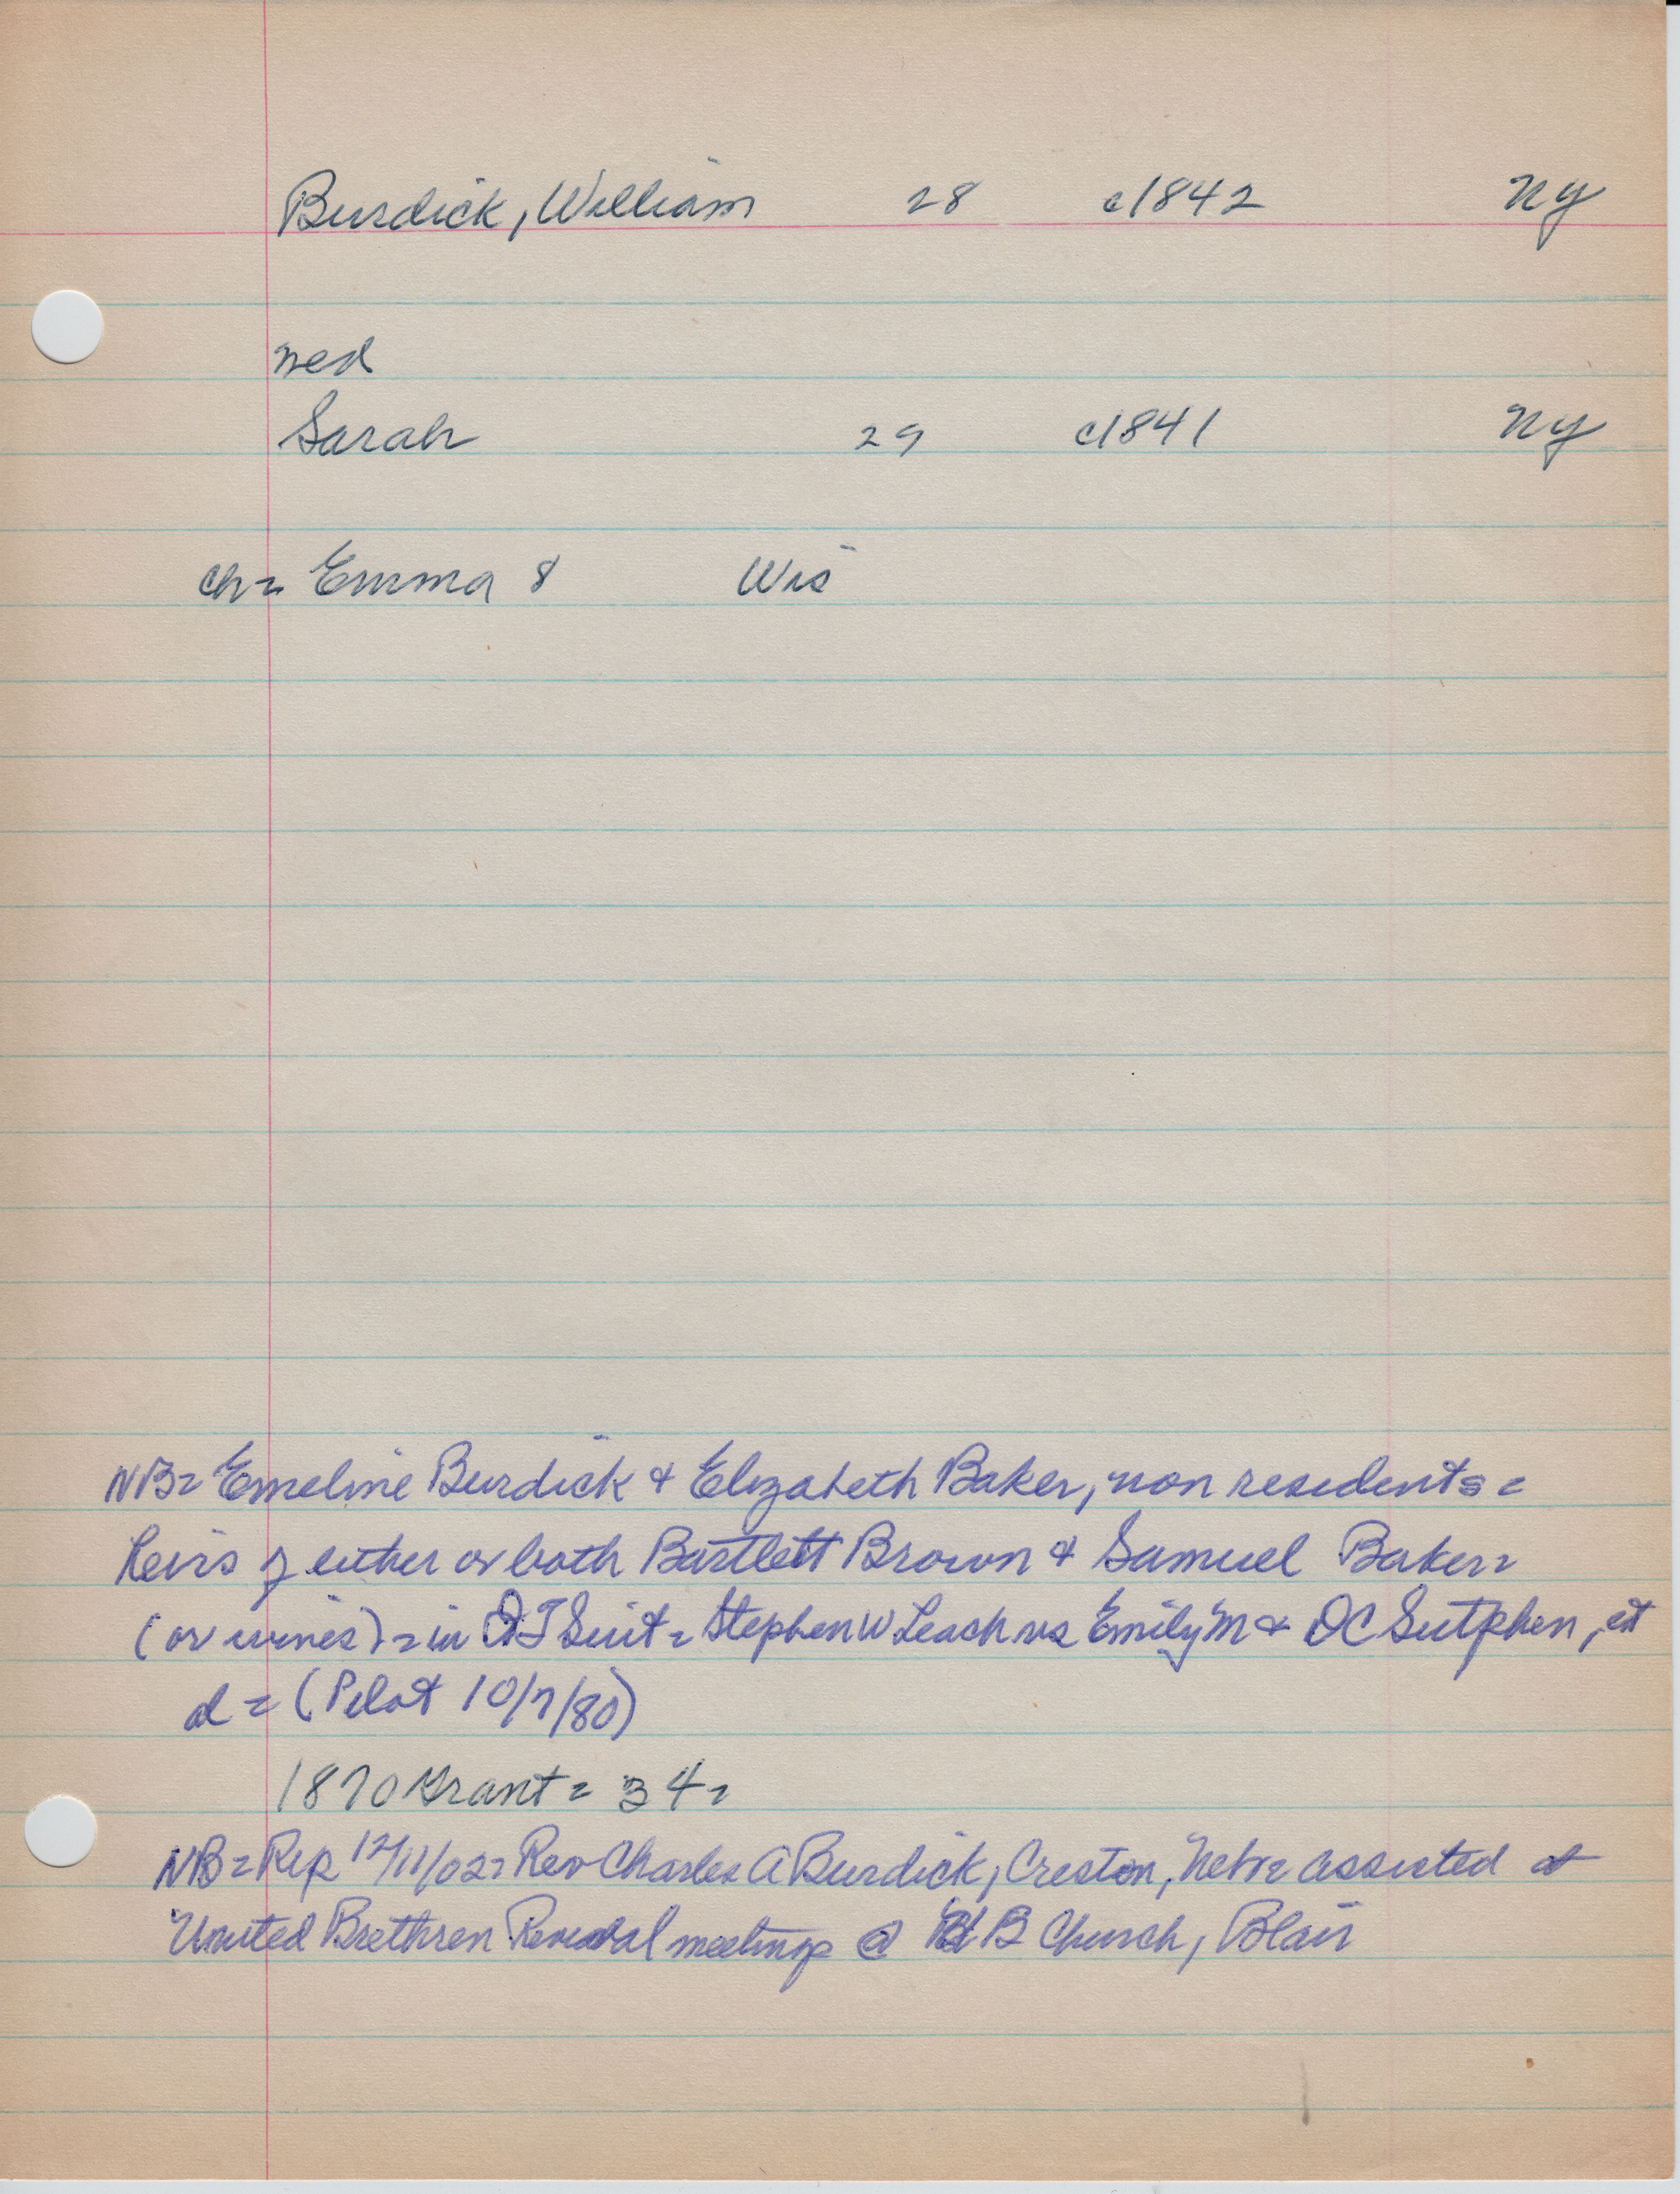 Burdick, William 28 c1842 NY
med
Sarah 29 c1841 NY
ch= Emma 8 Wis
NB= Emeline Burdick & Elizabeth Baker, non residents=
heirs of either or both Bartlett Brown & Samuel Baker=
(or wives)= in QT Suit= Stephen W Leach vs Emily M & DC Sutphen, et
al= (Pilot 10/7/80)
1870 Grant= 34=
NB= Rep 12/11/02= Rev Charles A Burdick, Creston, Nebr= assisted at
United Brethren Revival meetings @ UB Church, Blair